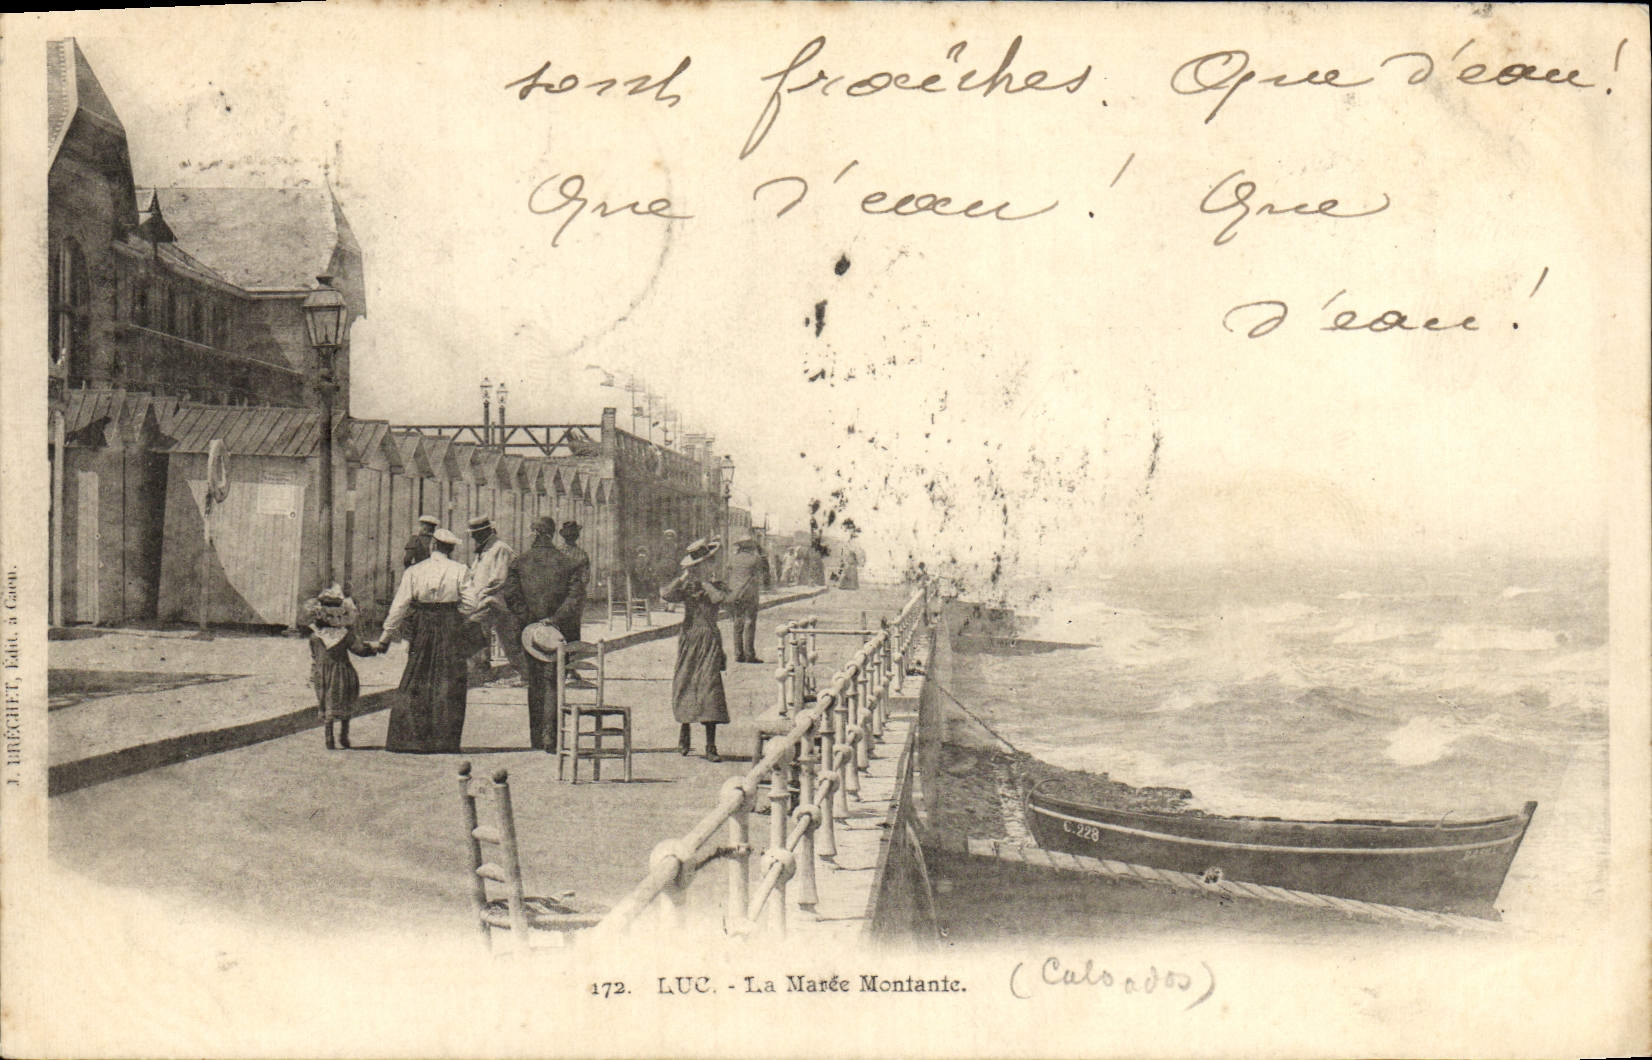 sont fraîches. Que d'eau!
Que d'eau! Que
d'eau!
C. 228
J. BRÉCHET, Édit. à Caen.
172. LUC. - La Marée Montante. (Calvados)